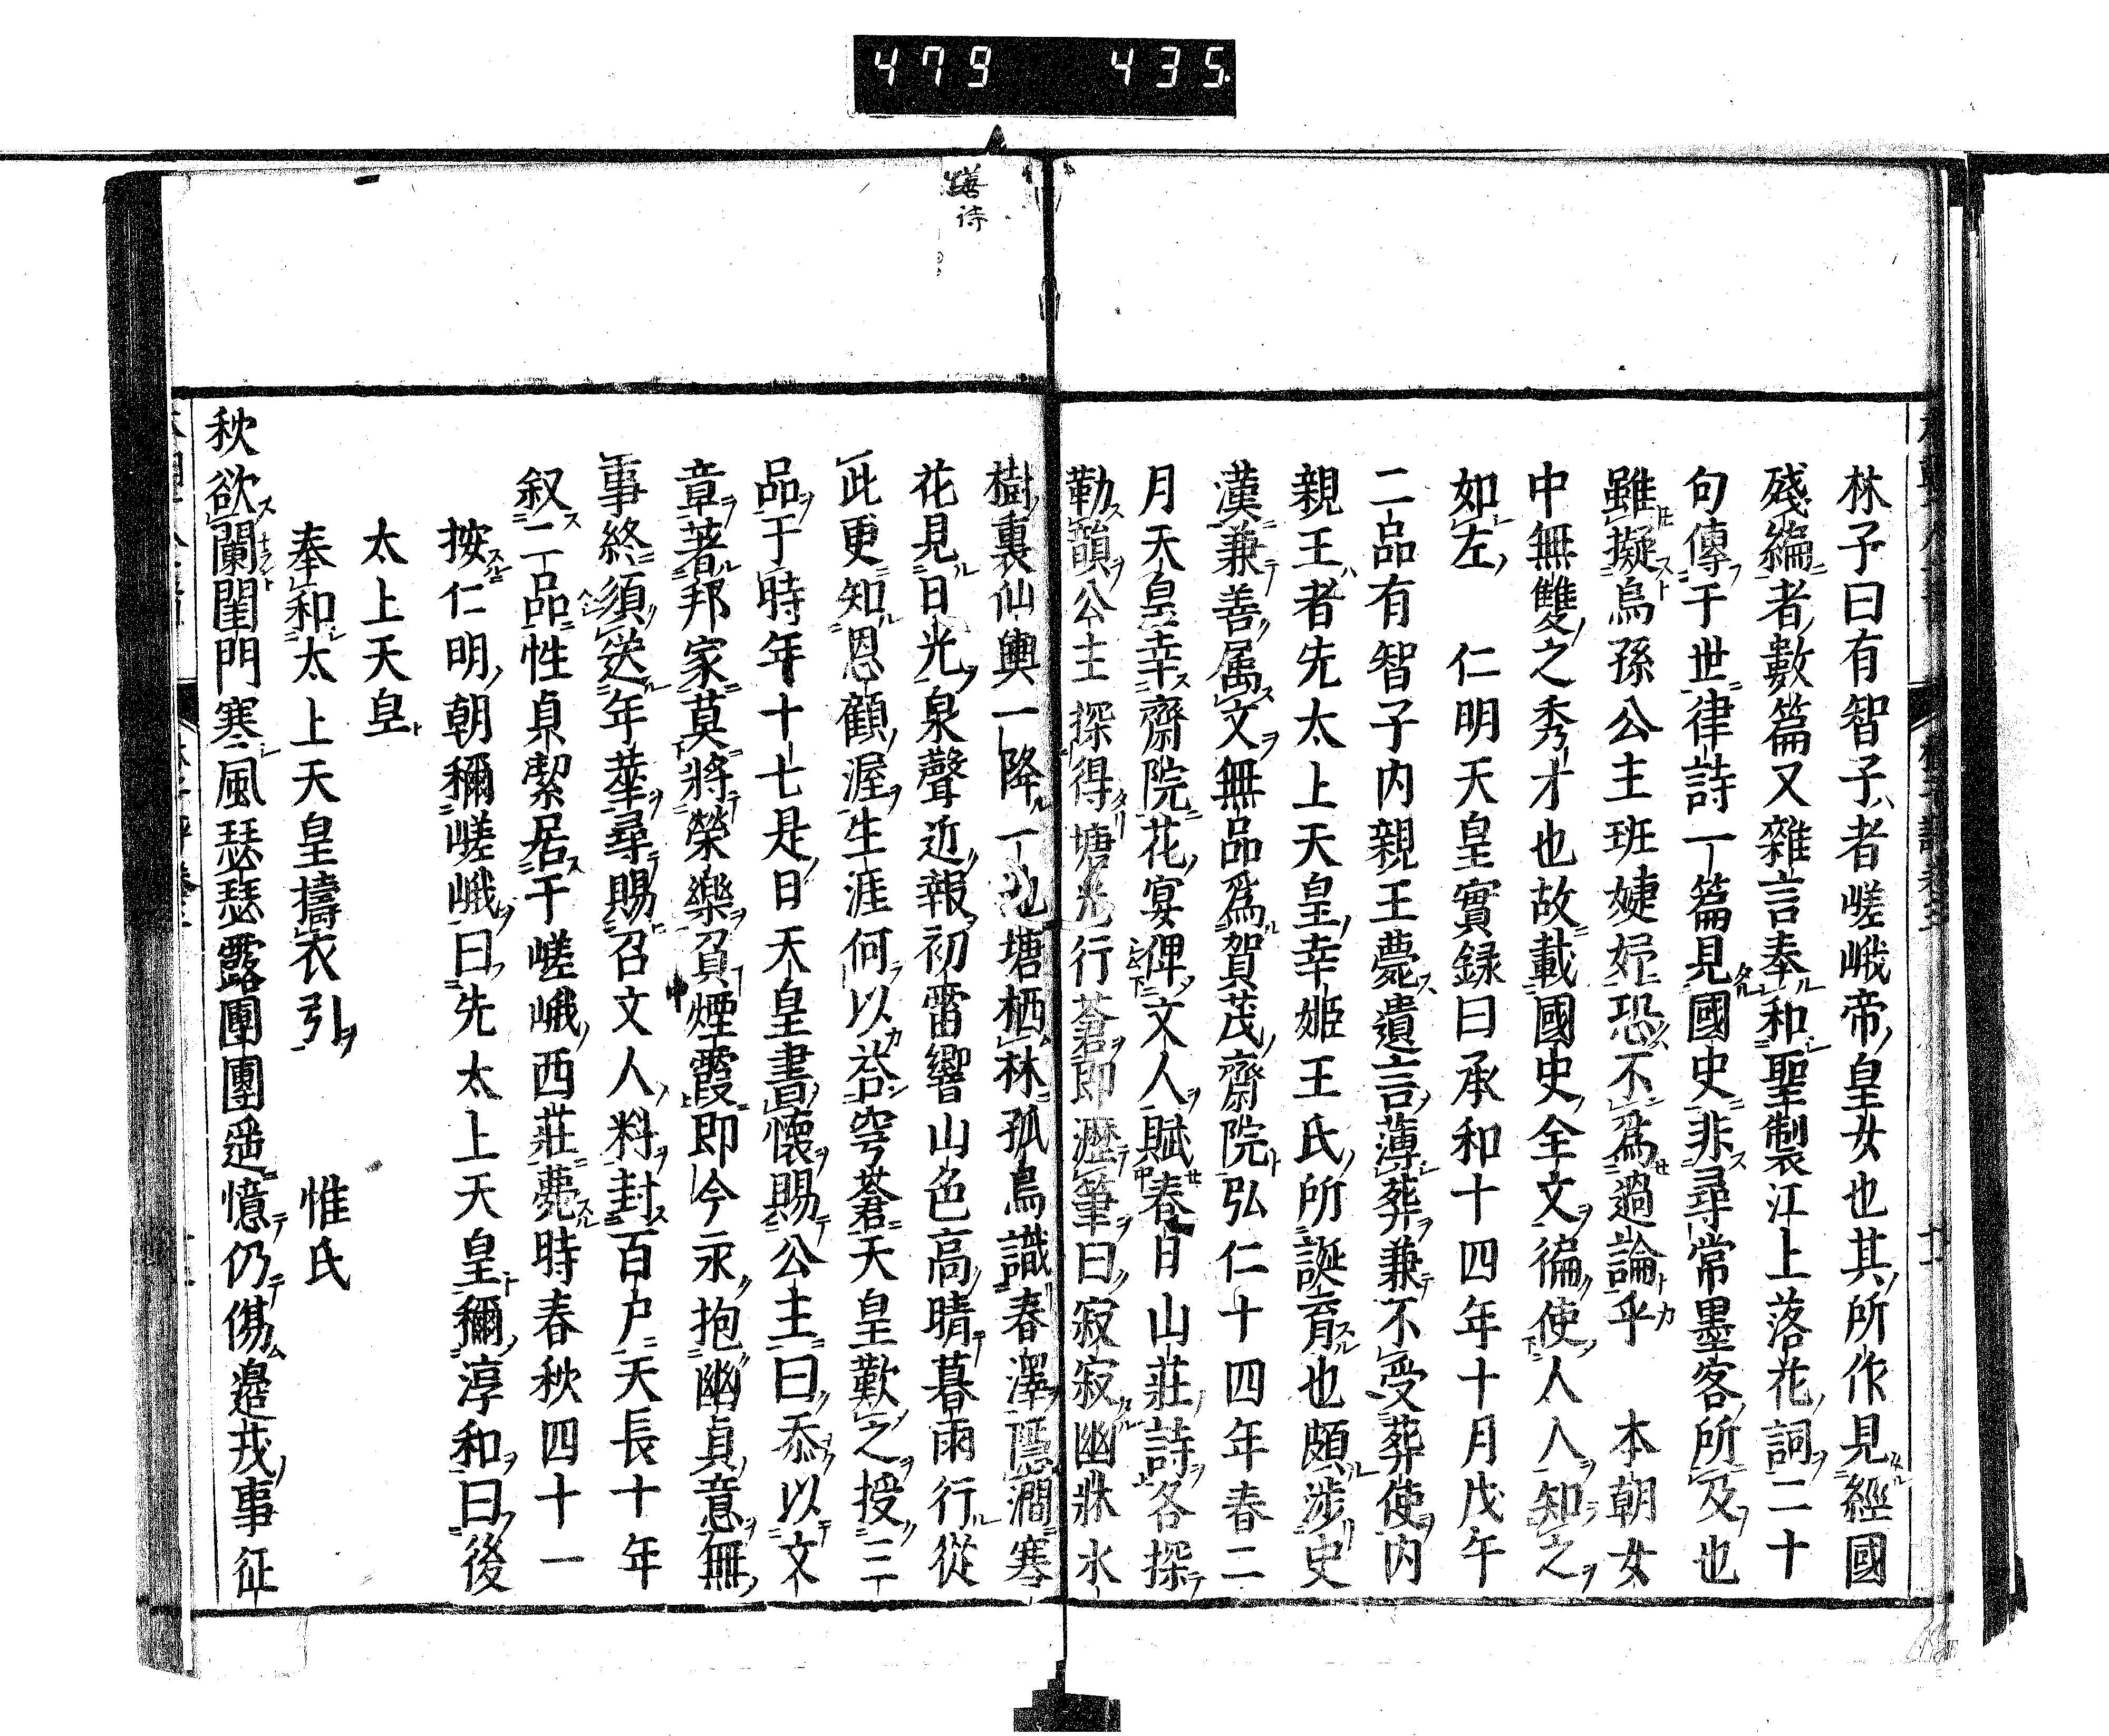 479 435
詩
林子曰有智子者嵯峨帝皇女也其所作見經國
殘編者數篇又雜言奉和聖製江上落花詞二十
句傳于世律詩一篇見國史非尋常墨客所及也
雖擬烏孫公主班婕妤恐不爲過論乎　本朝女
中無雙之秀才也故載國史全文徧使人人知之
如左　仁明天皇實録曰承和十四年十月戊午
二品有智子内親王薨遺言薄葬兼不受葬使内
親王者先太上天皇幸姬王氏所誕育也頗涉史
漢兼善属文無品爲賀茂齋院弘仁十四年春二
月天皇幸齋院花宴俾文人賦春日山莊詩各探
勒韻公主探得塘光行蒼即瀝筆曰寂寂幽莊水
樹裏仙輿一降一池塘栖林孤鳥識春澤隱澗寒
花見日光泉聲近報初雷響山色高晴暮雨行從
此更知恩顧渥生涯何以荅穹蒼天皇歎之授三
品于時年十七是日天皇書懷賜公主曰忝以文
章著邦家莫將榮樂負煙霞即今永抱幽貞意無
事終須送年華尋賜召文人料封百户天長十年
叙二品性貞潔居于嵯峨西莊薨時春秋四十一
按仁明朝稱嵯峨曰先太上天皇稱淳和曰後
太上天皇
奉和太上天皇擣衣引　惟氏
秋欲闌閨門寒風瑟瑟露團團遥憶仍傷邊戎事征